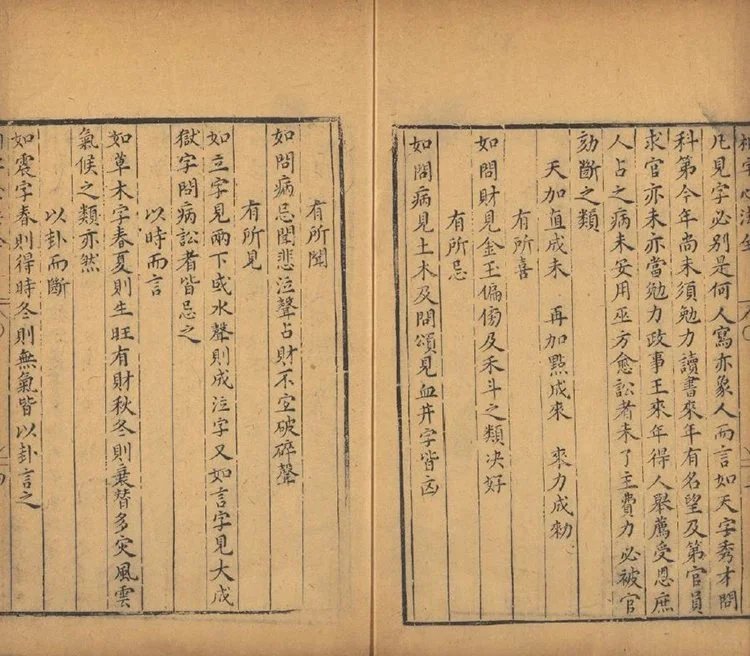 凡見字必別是何人寫亦象人而言如天字秀才問
科第今年尚未須勉力讀書來年有名望及第官員
求官亦未亦當勉力政事王來年得人舉薦受恩庶
人占之病未妥用巫方愈訟者未了主費力必被官
劾斷之類
天加直成未 再加點成來 來力成勑
有所喜
如問財見金玉偏傍及禾斗之類決好
有所忌
如問病見土木及問頌見血井字皆凶
有所聞
如問病忌聞悲泣聲占財不宜破碎聲
有所見
如立字見兩下或水聲則成泣字又如言字見大成
獄字問病訟者皆忌之
以時而言
如草木字春夏則生旺有財秋冬則衰替多灾風雲
氣候之類亦然
以卦而斷
如震字春則得時冬則無氣皆以卦言之